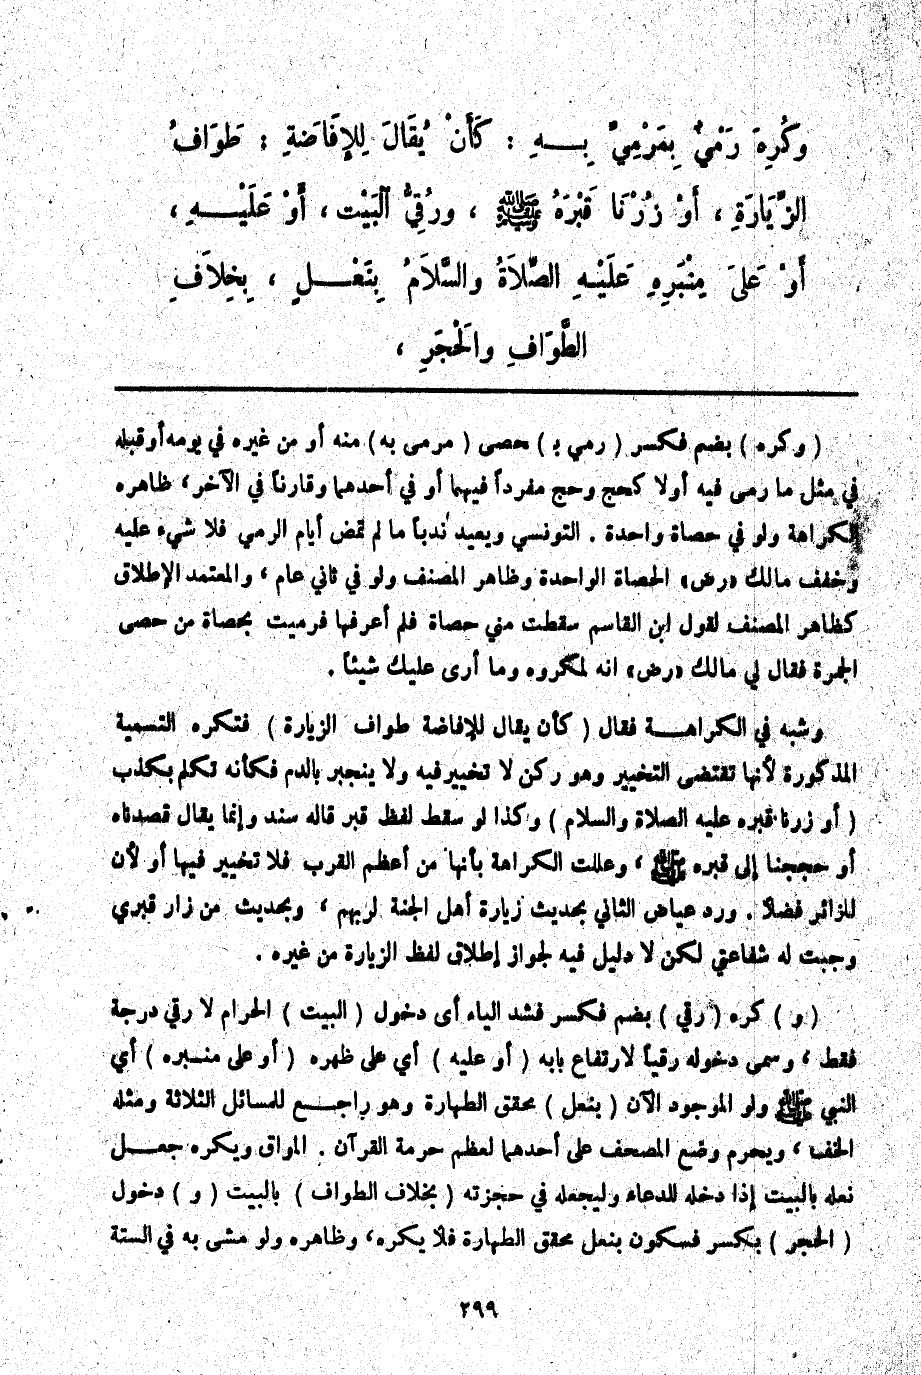 وَكُرِهَ رَمْيٌ بِمَرْمِيٍّ بِــهِ : كَأَنْ يُقَالَ لِلإِفَاضَةِ : طَوَافُ
الزِّيَارَةِ ، أَوْ زُرْنَا قَبْرَهُ ﷺ ، ورُقِيُّ الْبَيْتِ ، أَوْ عَلَيْــهِ ،
أَوْ عَلَى مِنْبَرِهِ عَلَيْهِ الصَّلاَةُ والسَّلاَمُ بِنَعْــلٍ ، بِخِلاَفِ
الطَّوَافِ والْحَجَرِ ،
( وكره ) بضم فكسر ( رمي بـ ) حصى ( مرمى به ) منه أو من غيره في يومه أو قبله
في مثل ما رمى فيه أولا كحج وحج مفرداً فيهما أو في أحدهما وقارناً في الآخر ، ظاهره
الكراهة ولو في حصاة واحدة . التونسي ويعيد ندباً ما لم تمض أيام الرمي فلا شيء عليه
وخفف مالك «رض» الحصاة الواحدة وظاهر المصنف ولو في ثاني عام ، والمعتمد الإطلاق
كظاهر المصنف لقول ابن القاسم سقطت مني حصاة فلم أعرفها فرميت بحصاة من حصى
الجمرة فقال لي مالك «رض» انه لمكروه وما أرى عليك شيئاً .
وشبه في الكراهــة فقال ( كأن يقال للإفاضة طواف الزيارة ) فتكره التسمية
المذكورة لأنها تقتضى التخيير وهو ركن لا تخيير فيه ولا ينجبر بالدم فكأنه تكلم بكذب
( أو زرنا قبره عليه الصلاة والسلام ) وكذا لو سقط لفظ قبر قاله سند وإنما يقال قصدناه
أو حججنا إلى قبره ﷺ ، وعللت الكراهة بأنها من أعظم القرب فلا تخيير فيها أو لأن
للزائر فضلاً . ورد عياض الثاني بحديث زيارة أهل الجنة لربهم ، وبحديث من زار قبري
وجبت له شفاعتي لكن لا دليل فيه لجواز إطلاق لفظ الزيارة من غيره .
( و ) كره ( رقي ) بضم فكسر فشد الياء أى دخول ( البيت ) الحرام لا رقي درجة
فقط ، وسمى دخوله رقياً لارتفاع بابه ( أو عليه ) أي على ظهره ( أو على منــبره ) أي
النبي ﷺ ولو الموجود الآن ( بنعل ) محقق الطهارة وهو راجــع للمسائل الثلاثة ومثله
الخف ، ويحرم وضع المصحف على أحدهما لعظم حرمة القرآن . المواق ويكره جعــل
نعله بالبيت إذا دخله للدعاء وليجعله في حجزته ( بخلاف الطواف ) بالبيت ( و ) دخول
( الحجر ) بكسر فسكون بنعل محقق الطهارة فلا يكره ، وظاهره ولو مشى به في الستة
٢٩٩